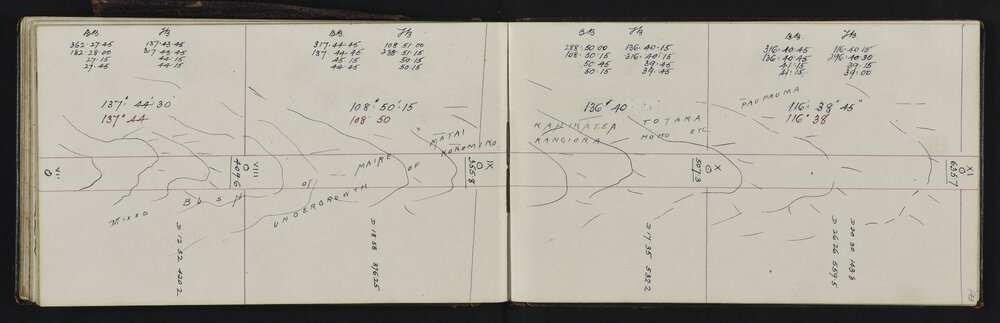 BB FB
362·27·45 137·43·45
182·28·00 317·43·45
27·15 44·15
27·45 44·15
137° 44' 30
137° 44
BB FB
317·44·45 108·51·00
137·44·45 288·51·15
45·15 50·15
44·45 50·15
108° 50' 15
108° 50
MATAI
KOROMIKO
MAIRE OF
MIXED BUSH OF
UNDERGROWTH
VII
VIII
4096
IX
3558
D 12 52 4202
D 18 58 37625
BB FB
288·50·00 136·40·15
108·50·15 316·40·15
50·45 39·45
50·15 39·45
136° 40
BB FB
316·40·45 116·40·15
136·40·45 296·40·30
41·15 39·15
41·15 39·00
PAUPAUMA
116° 39' 45"
116° 38'
KAHIKATEA TOTARA
RANGIORA HOHO ETC
X
5073
XI
6357
D 17 35 5322
D 26 26 5595
D 20 30 1438